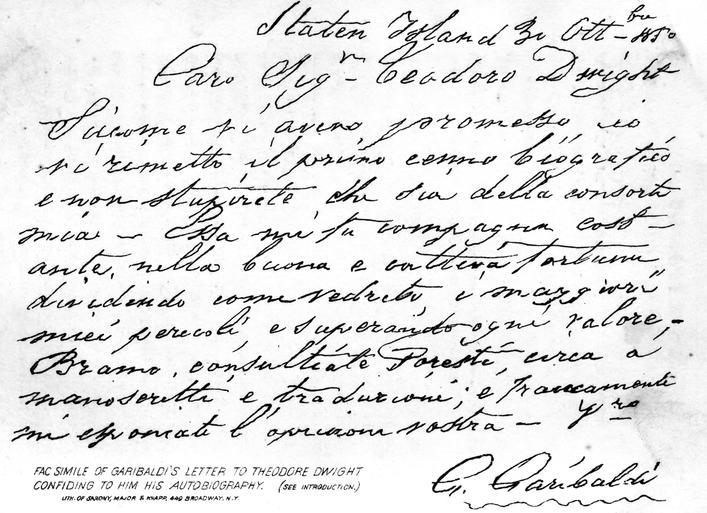 Staten Island 30 Ott-bre 1850
Caro Sigr Teodoro Dwight
Siccome vi aveva promesso io
vi rimetto il primo cenno biografico
e non stupirete che sia della consorte
mia - Essa mi fu compagna cost-
ante, nella buona e cattiva fortuna
dividendo come vedrete, i maggiori
miei pericoli, e superando ogni valore,-
Bramo, consultiate Foresti, circa a
manoscritti e traduzioni; e francamente
mi esponiate l'opinione vostra - Vro
G. Garibaldi
FAC SIMILE OF GARIBALDI'S LETTER TO THEODORE DWIGHT
CONFIDING TO HIM HIS AUTOBIOGRAPHY. (SEE INTRODUCTION.)
LITH. OF SARONY, MAJOR & KNAPP, 449 BROADWAY, N.Y.